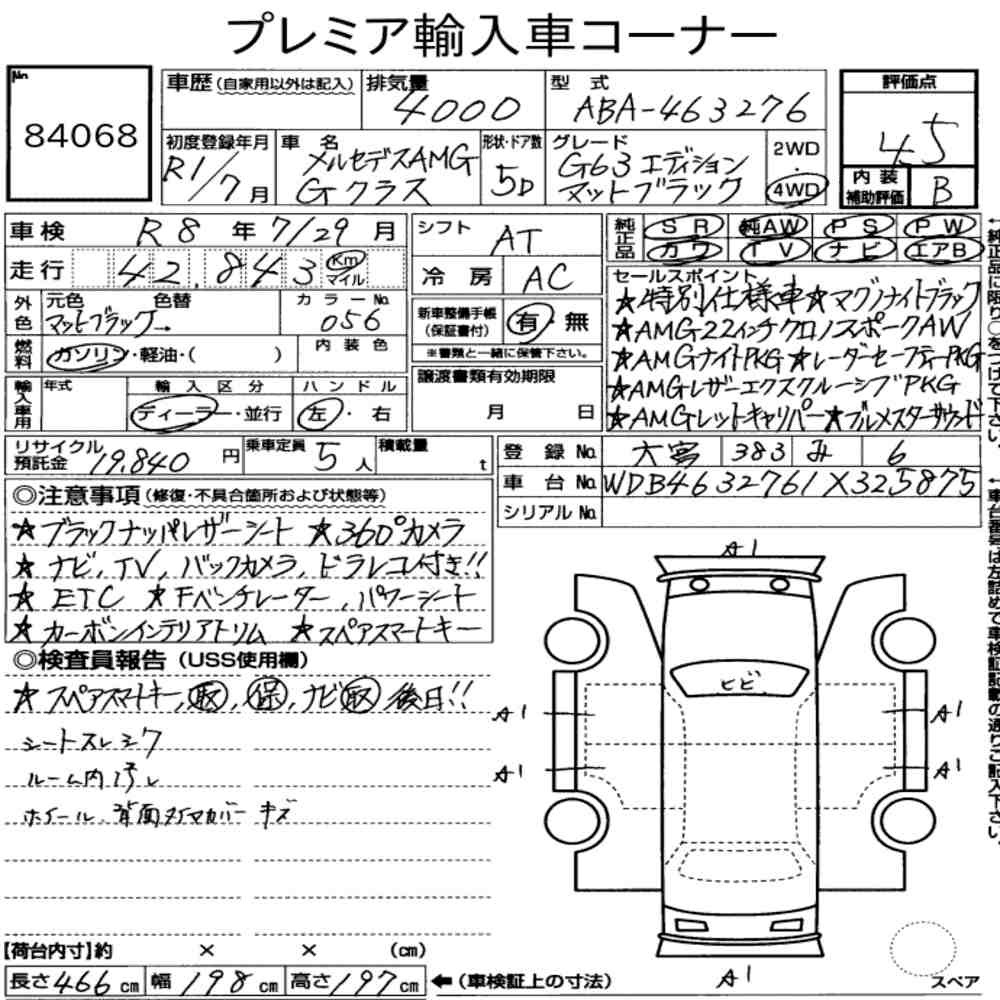 プレミア輸入車コーナー
No.
84068
車歴(自家用以外は記入)
排気量
4000
型 式
ABA-463276
評価点
4.5
内装補助評価
B
初度登録年月
R1/7月
車 名
メルセデスAMG
Gクラス
形状・ドア数
5D
グレード
G63 エディション
マットブラック
2WD
・
4WD
車検 R8年7/29月
走行 42,843 Km
マイル
シフト
AT
冷房 AC
純正品
SR 純AW PS PW
カワ TV ナビ エアB
外色
元色 色替
マットブラック→
カラーNo.
056
燃料
ガソリン・軽油・( )
内装色
新車整備手帳
(保証書付)
有・無
※書類と一緒に保管下さい。
輸入車用
年式
輸入区分
ディーラー・並行
ハンドル
左・右
譲渡書類有効期限
月 日
セールスポイント
★特別仕様車★マグノナイトブラック
★AMG22インチクロノスポークAW
★AMGナイトPKG★レーダーセーフティーPKG
★AMGレザーエクスクルーシブPKG
★AMGレットキャリパー★ブルメスターサウンド
リサイクル
預託金 19,840円
乗車定員 5人
積載量 t
登録No. 大宮 383 み 6
車台No. WDB4632761X325875
シリアルNo.
◎注意事項(修復・不具合箇所および状態等)
★ブラックナッパレザーシート ★360°カメラ
★ナビ,TV,バックカメラ,ドラレコ付き!!
★ETC ★Fベンチレーター,パワーシート
★カーボンインテリアトリム ★スペアスマートキー
◎検査員報告(USS使用欄)
★スペアスマートキー,取,保,ナビ取後日!!
シートスレシワ
ルーム内汚レ
ホイール、背面タイヤカバー キズ
A1
ヒビ
A1
A1
A1
A1
A1
スペア
【荷台内寸】約 × × (cm)
長さ466cm 幅198cm 高さ197cm ←(車検証上の寸法)
←純正品に限り○をつけて下さい。
←車台番号は左詰めで車検証記載の通りご記入下さい。